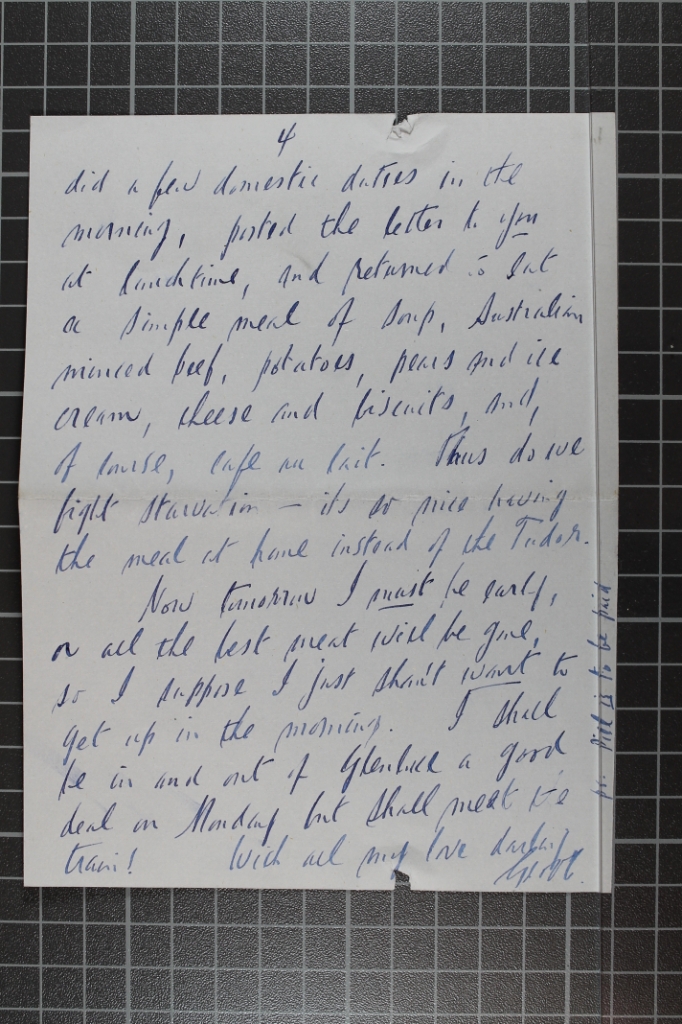 4
did a few domestic duties in the
morning, posted the letter to you
at lunchtime, and returned to eat
a simple meal of soup, Australian
minced beef, potatoes, pears and ice
cream, cheese and biscuits, and,
of course, cafe au lait. Thus do we
fight starvation – its so nice having
the meal at home instead of the Tudor.
Now tomorrow I must be early,
or all the best meat will be gone,
so I suppose I just shan't want to
get up in the morning. I shall
be in and out of a good
deal on Monday but shall meet the
train! With all my love darling
Geoff.
is to be paid